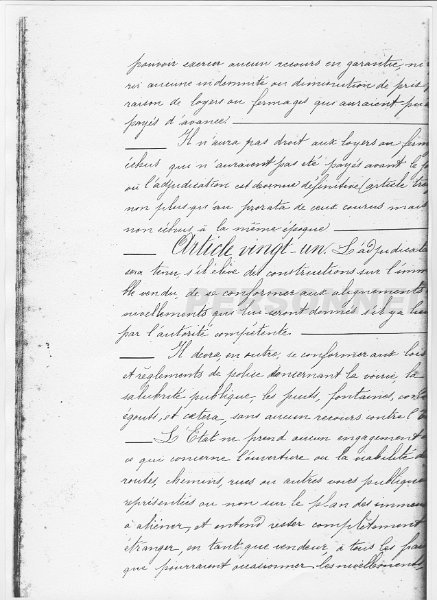 pouvoir exercer aucun recours en garantie, ni
ni aucune indemnité ou diminution de prix
raison de loyers ou fermages qui auraient
payés d'avance.
Il n'aura pas droit aux loyers ou
échus qui n'auraient pas été payés avant le
où l'adjudication est devenue définitive (article
non plus qu'au prorata de ceux courus mais
non échus, à la même époque
Article vingt-un. L'adjudicataire
sera tenu, s'il élève des constructions sur
vendu, de se conformer aux alignements
nivellements qui lui seront donnés s'il y a lieu
par l'autorité compétente.
Il devra, en outre, se conformer aux lois
et règlements de police concernant la voirie, la
salubrité publique, les puits, fontaines,
égouts, et cætera, sans aucun recours contre l'
L'Etat ne prend aucun engagement
ce qui concerne l'ouverture ou la viabilité
routes, chemins, rues ou autres voies publiques
représentées ou non sur le plan des
à aliéner, et entend rester complètement
étranger, en tant que vendeur, à tous les
que pourraient occasionner les nivellements
PERSONNEL